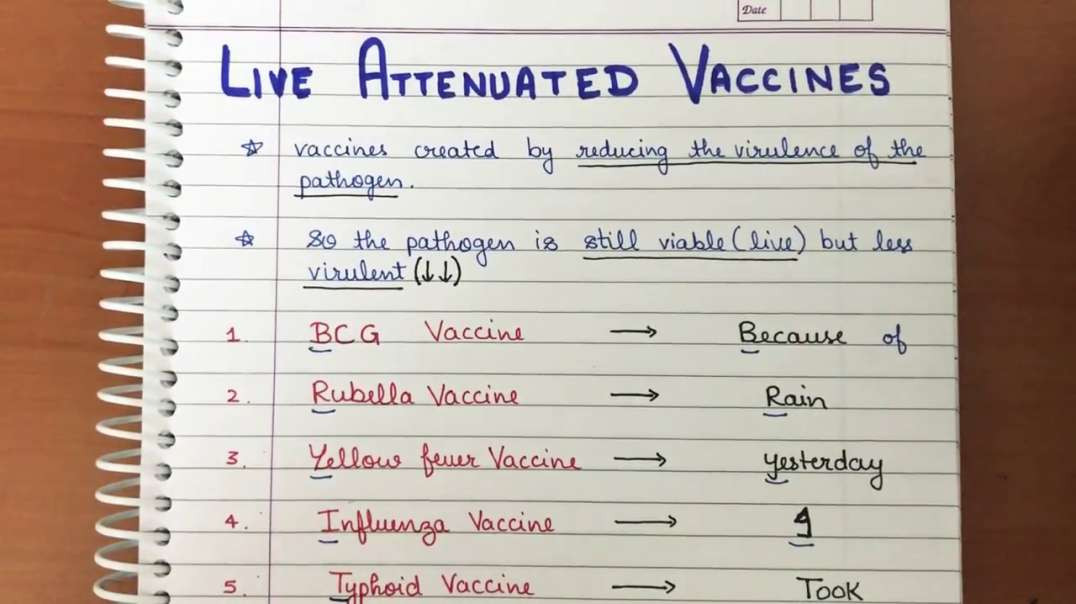 Date
LIVE ATTENUATED VACCINES
☆ vaccines created by reducing the virulence of the
pathogen.
☆ So the pathogen is still viable (live) but less
virulent (↓↓)
1. BCG Vaccine → Because of
2. Rubella Vaccine → Rain
3. Yellow fever Vaccine → yesterday
4. Influenza Vaccine → I
5. Typhoid Vaccine → Took